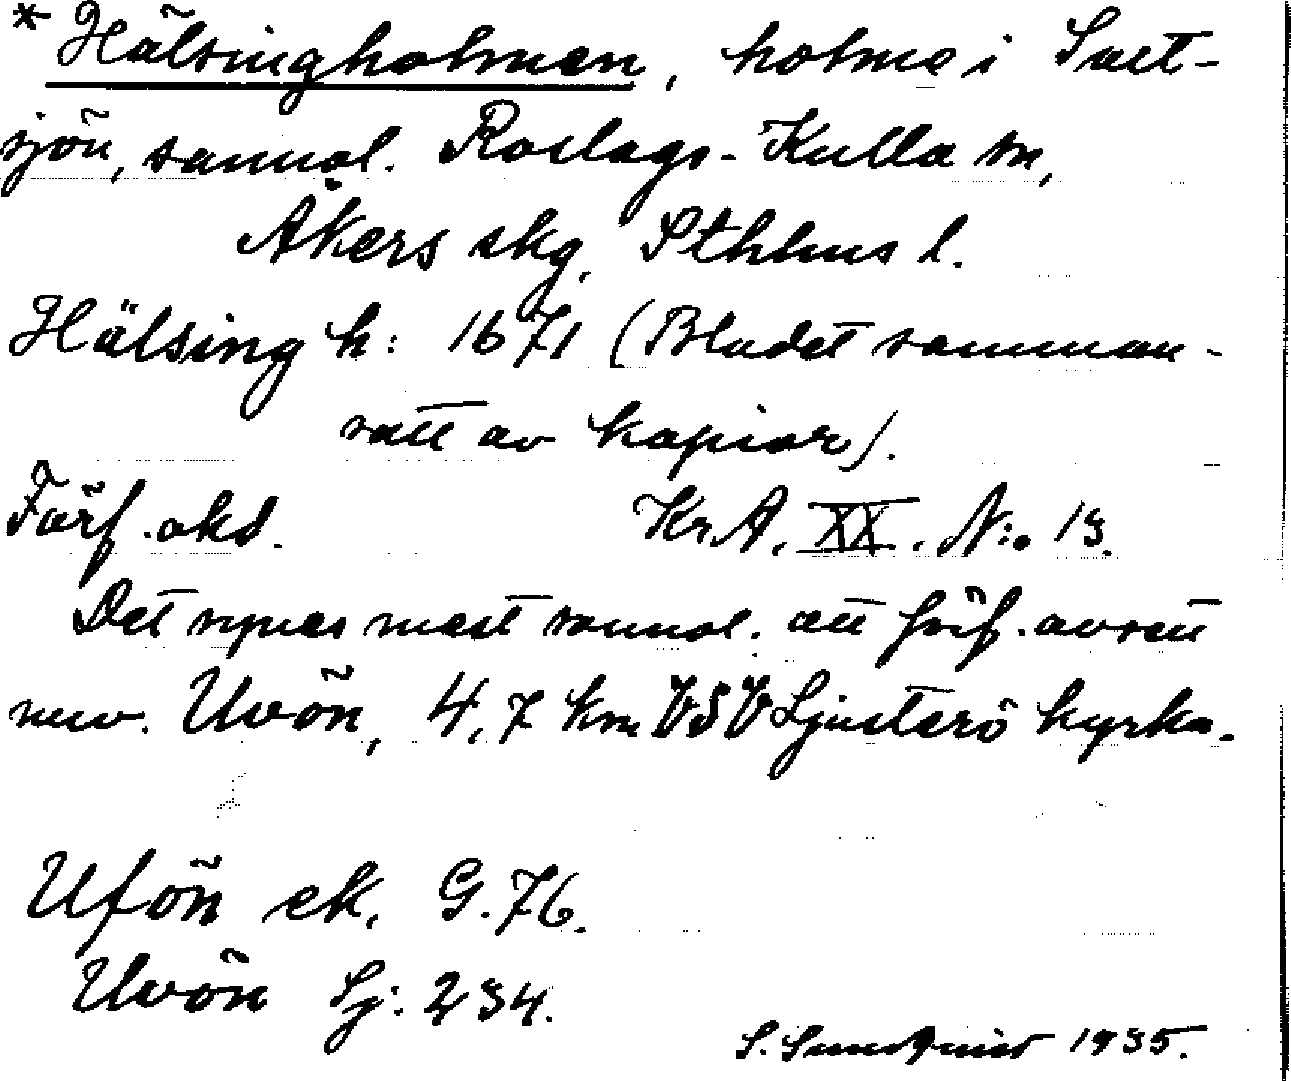 * Hälsingholmen, holme i Salt-
sjön, sannol. Roslags-Kulla sn,
Åkers skg, Sthlms l.
Hälsing h: 1671 (Bladet samman-
satt av kopior).
Förf. okd. Kr.A. XX. N:o 13.
Det synes mest sannol. att förf. avsett
nuv. Uvön, 4,7 km VSV Ljusterö kyrka.
Ufön ek. G. 76.
Uvön Sj: 234.
S. Sundqvist 1935.